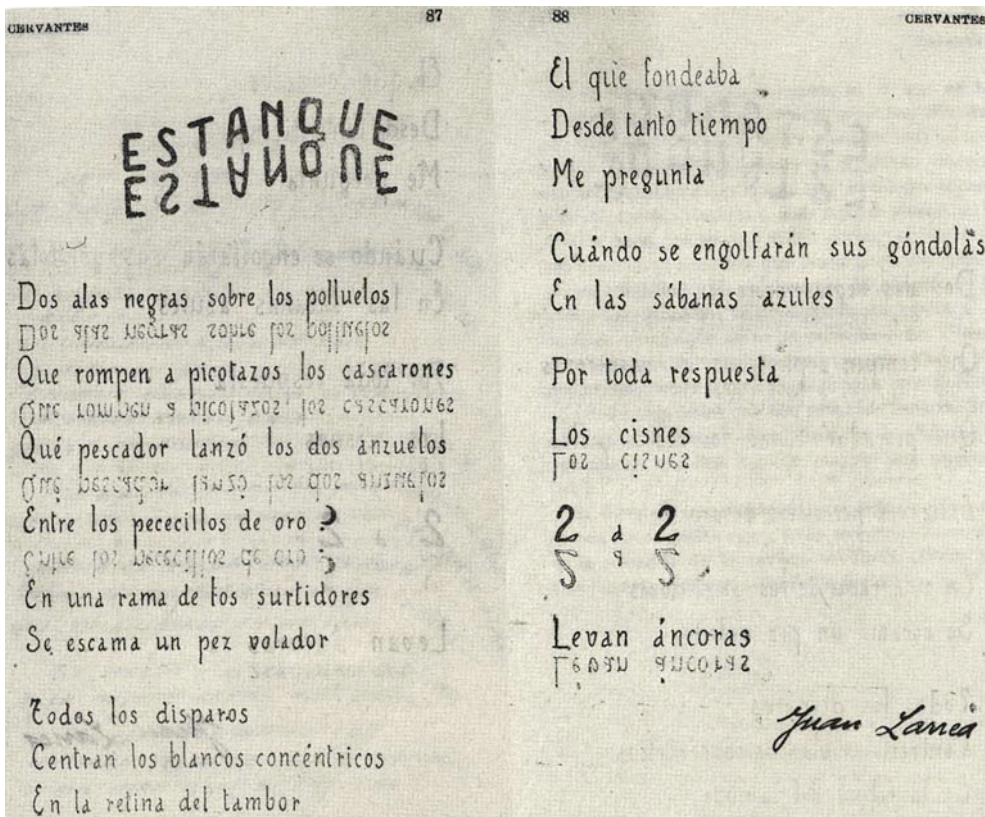 CERVANTES
87
ESTANQUE
ESTANQUE
Dos alas negras sobre los polluelos
Dos alas negras sobre los polluelos
Que rompen a picotazos los cascarones
Que rompen a picotazos los cascarones
Qué pescador lanzó los dos anzuelos
Qué pescador lanzó los dos anzuelos
Entre los pececillos de oro ?
Entre los pececillos de oro ?
En una rama de los surtidores
Se escama un pez volador
Todos los disparos
Centran los blancos concéntricos
En la retina del tambor
88
CERVANTES
El que fondeaba
Desde tanto tiempo
Me pregunta
Cuándo se engolfarán sus góndolas
En las sábanas azules
Por toda respuesta
Los cisnes
Los cisnes
2 a 2
2 a 2
Levan áncoras
Levan áncoras
Juan Larrea